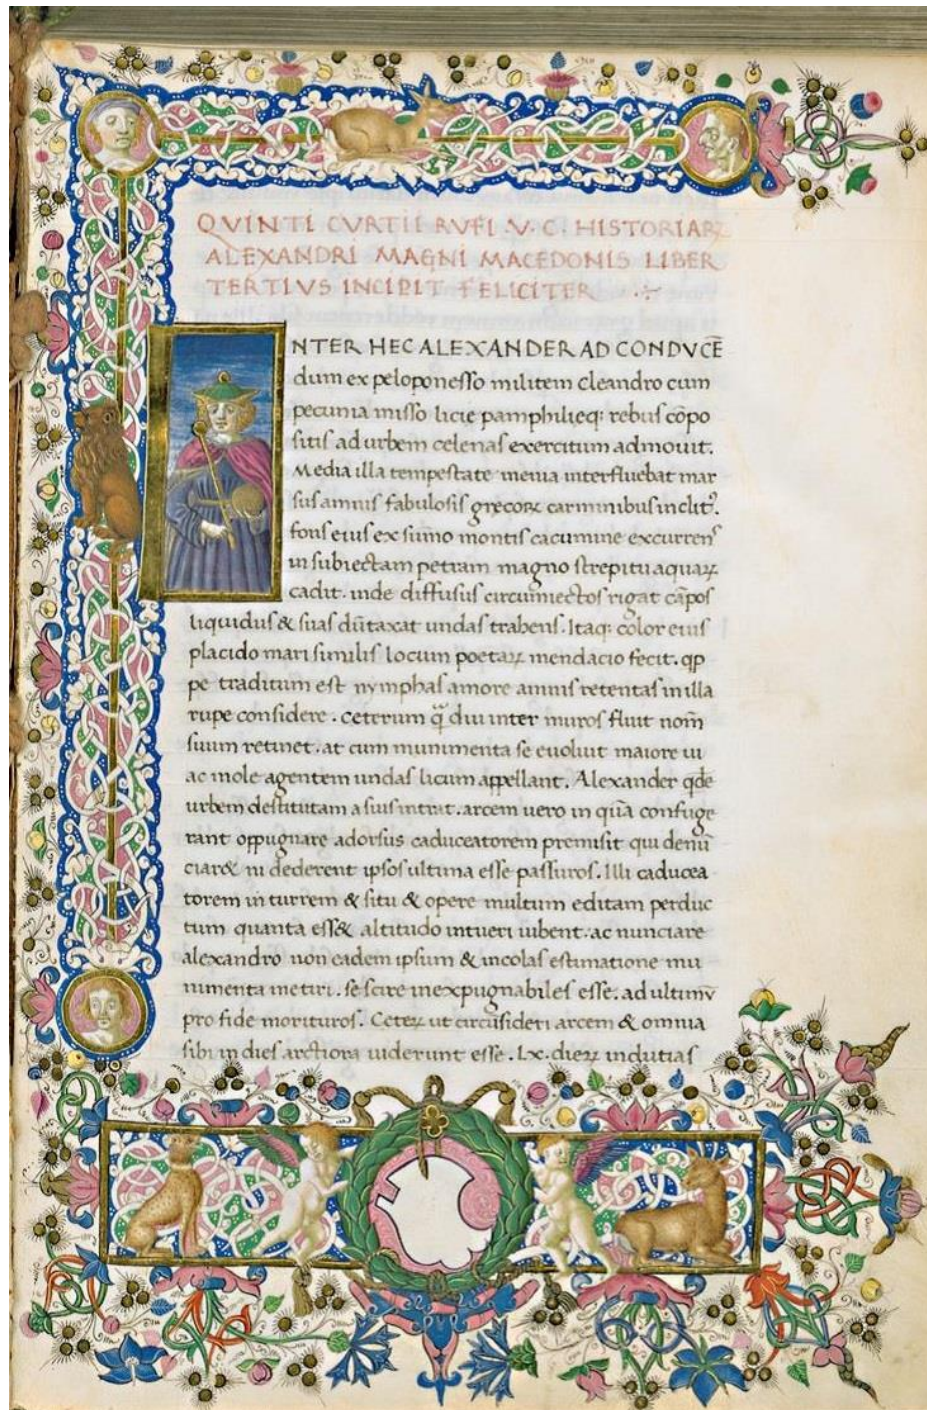 QVINTI CVRTII RVFI V. C. HISTORIARꝜ
ALEXANDRI MAGNI MACEDONIS LIBER
TERTIVS INCIPIT FELICITER
INTER HEC ALEXANDER AD CONDVCĒ
dum ex peloponesso militem cleandro cum
pecunia misso licie pamphilieq; rebus cōpo
sitis ad urbem celenas exercitum admouit.
Media illa tempestate menia interfluebat mar
sus amnis fabulosis grecoꝝ carminibus inclitꝰ.
fons eius ex sūmo montis cacumine excurrens
in subiectam petram magno strepitu aquaꝝ
cadit. inde diffusus circumiectos rigat cāpos
liquidus & suas dūtaxat undas trahens. Itaq; color eius
placido mari similis locum poetaꝝ mendacio fecit. qp
pe traditum est nymphas amore amnis retentas in illa
rupe considere. ceterum q̄ diu inter muros fluit nom̄
suum retinet. at cum munimenta se euoluit maiore ui
ac mole agentem undas licum appellant. Alexander qde
urbem destitutam a suis intrat. arcem uero in quā confuge
rant oppugnare adorsus caduceatorem premisit qui denū
ciar& ni dederent ipsos ultima esse passuros. Illi caducea
torem in turrem & situ & opere multum editam perduc
tum quanta ess& altitudo intueri iubent. ac nunciare
alexandro non eadem ipsum & incolas estimatione mu
nimenta metiri. se scire inexpugnabiles esse. ad ultimū
pro fide morituros. Ceteꝝ ut circūsideri arcem & omnia
sibi in dies arctiora uiderunt esse. lx. dieꝝ indutias